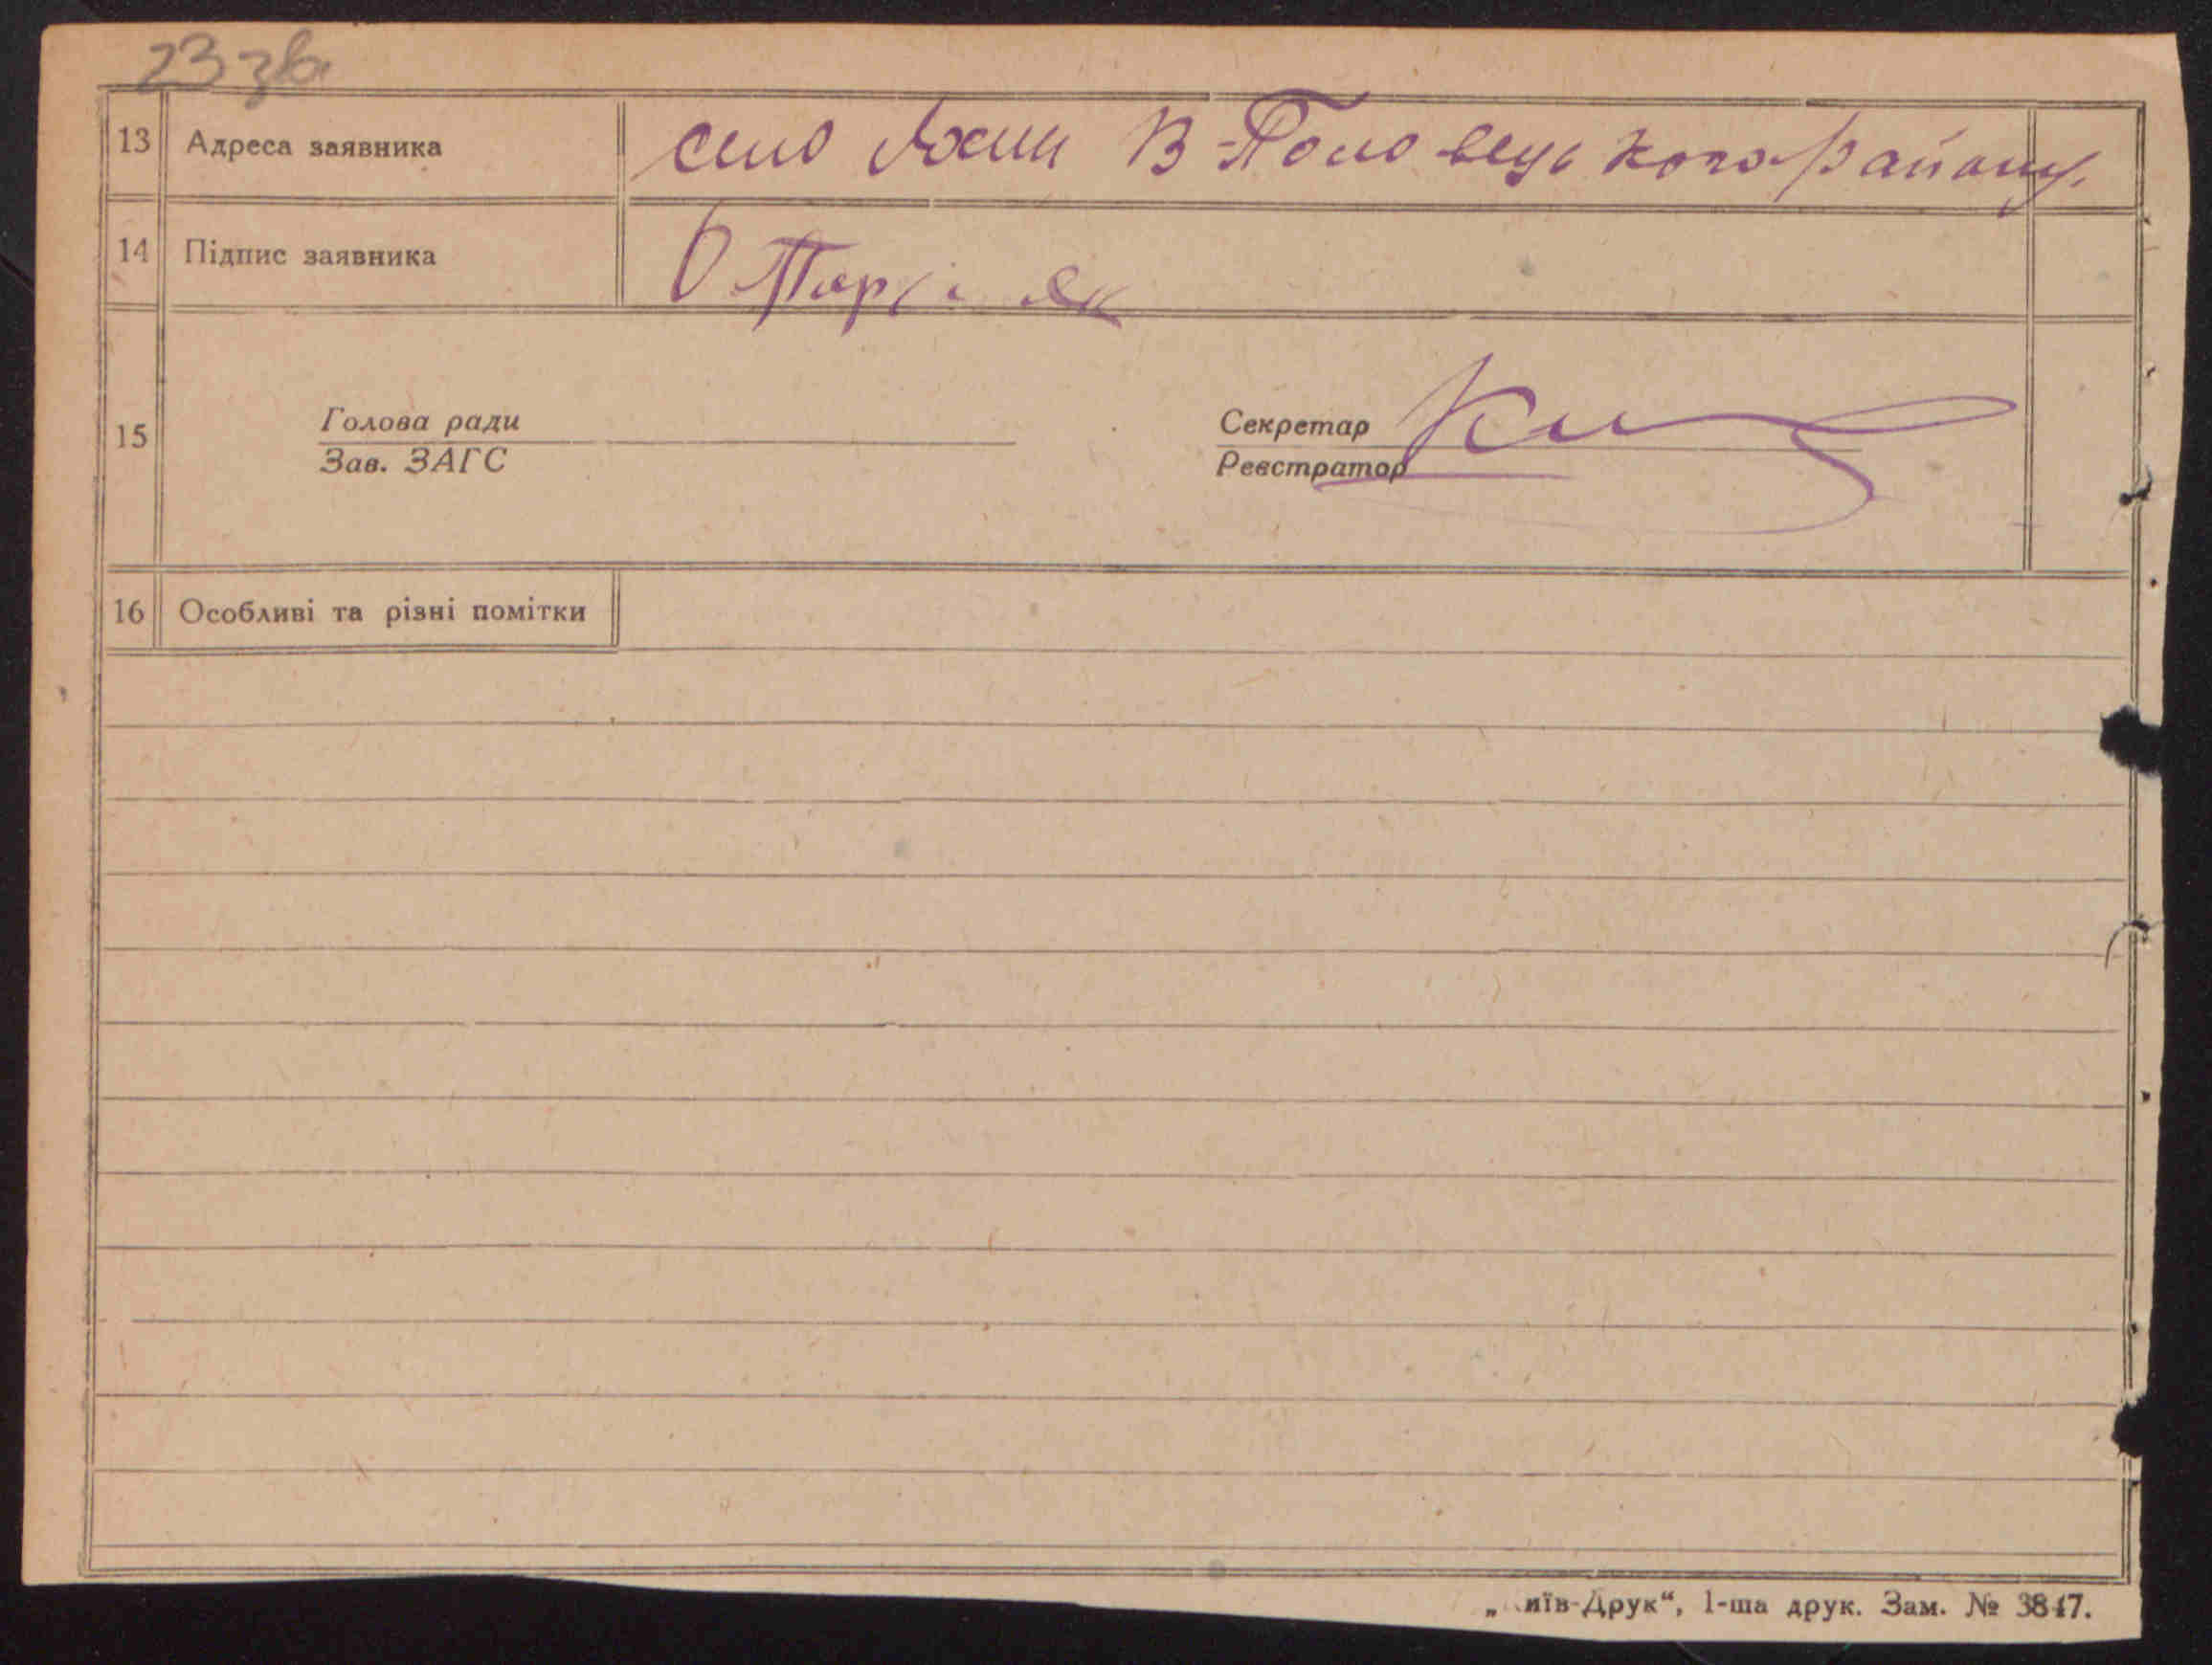 23 зв.
13 Адреса заявника село Яхни В-Половецького району.
14 Підпис заявника О
15 Голова ради Секретар
Зав. ЗАГС Реєстратор
16 Особливі та різні помітки
„ иїв-Друк“, 1-ша друк. Зам. № 3847.